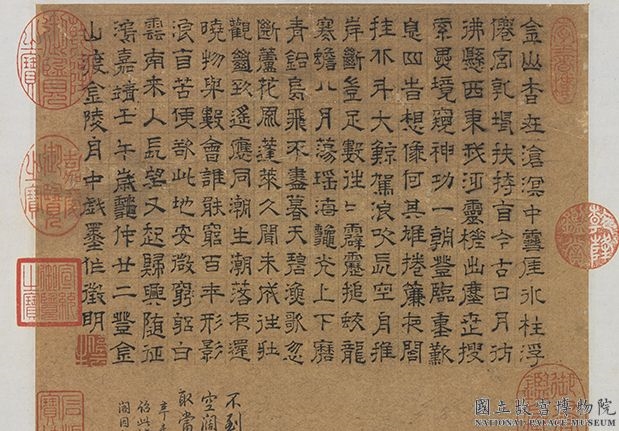 金山杳在滄溟中雪厓冰柱浮
僊宮乾坤扶持自今古日月彷
沸懸西東我泛靈槎出塵世搜
索異境窺神功一朝登臨重歎
息四時想像何其雄捲簾夜閣
挂北斗大鯨駕浪吹長空舟摧
岸斷豈足數往往霹靂搥蛟龍
寒蟾八月蕩瑤海秋光上下磨
青銅鳥飛不盡暮天碧漁歌忽
斷蘆花風蓬萊久聞未成往壯
觀絕致遙應同潮生潮落夜還
曉物與數會誰能窮百年形影
浪自苦便欲此地安微躬白
雲南來入長望又起歸興隨征
鴻嘉靖壬午歲秋仲廿二登金
山渡金陵舟中戲墨作徵明
不到
空闊
乾隆鑑賞
嘉慶御覽之寶
宣統御覽之寶
國立故宮博物院
NATIONAL PALACE MUSEUM